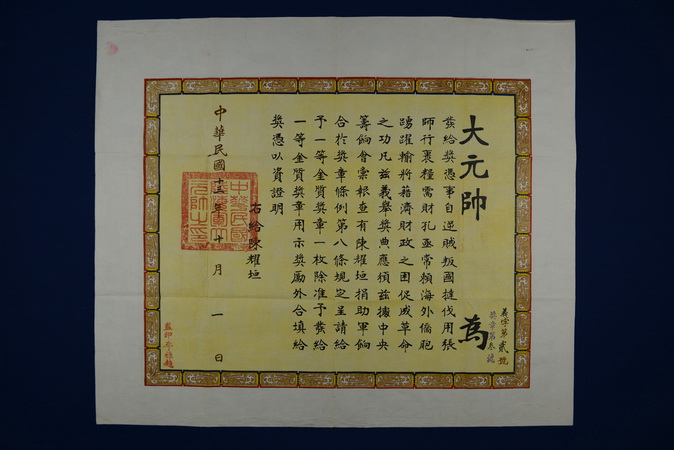 義字第貳號
獎章第叁號
大元帥 為
茲給獎憑事自逆賊叛國撻伐用張
師行裹糧需財孔亟常賴海外僑胞
踴躍輸將藉濟財政之困促成革命
之功凡茲義舉獎典應頒茲據中央
籌餉會彙報查有陳耀垣捐助軍餉
合於獎章條例第八條規定呈請給
予一等金質獎章一枚除准予發給
一等金質獎章用示獎勵外合填給
獎憑以資證明
右給陳耀垣
中華民國
陸海軍大
元帥之印
中華民國十三年十月一日
監印